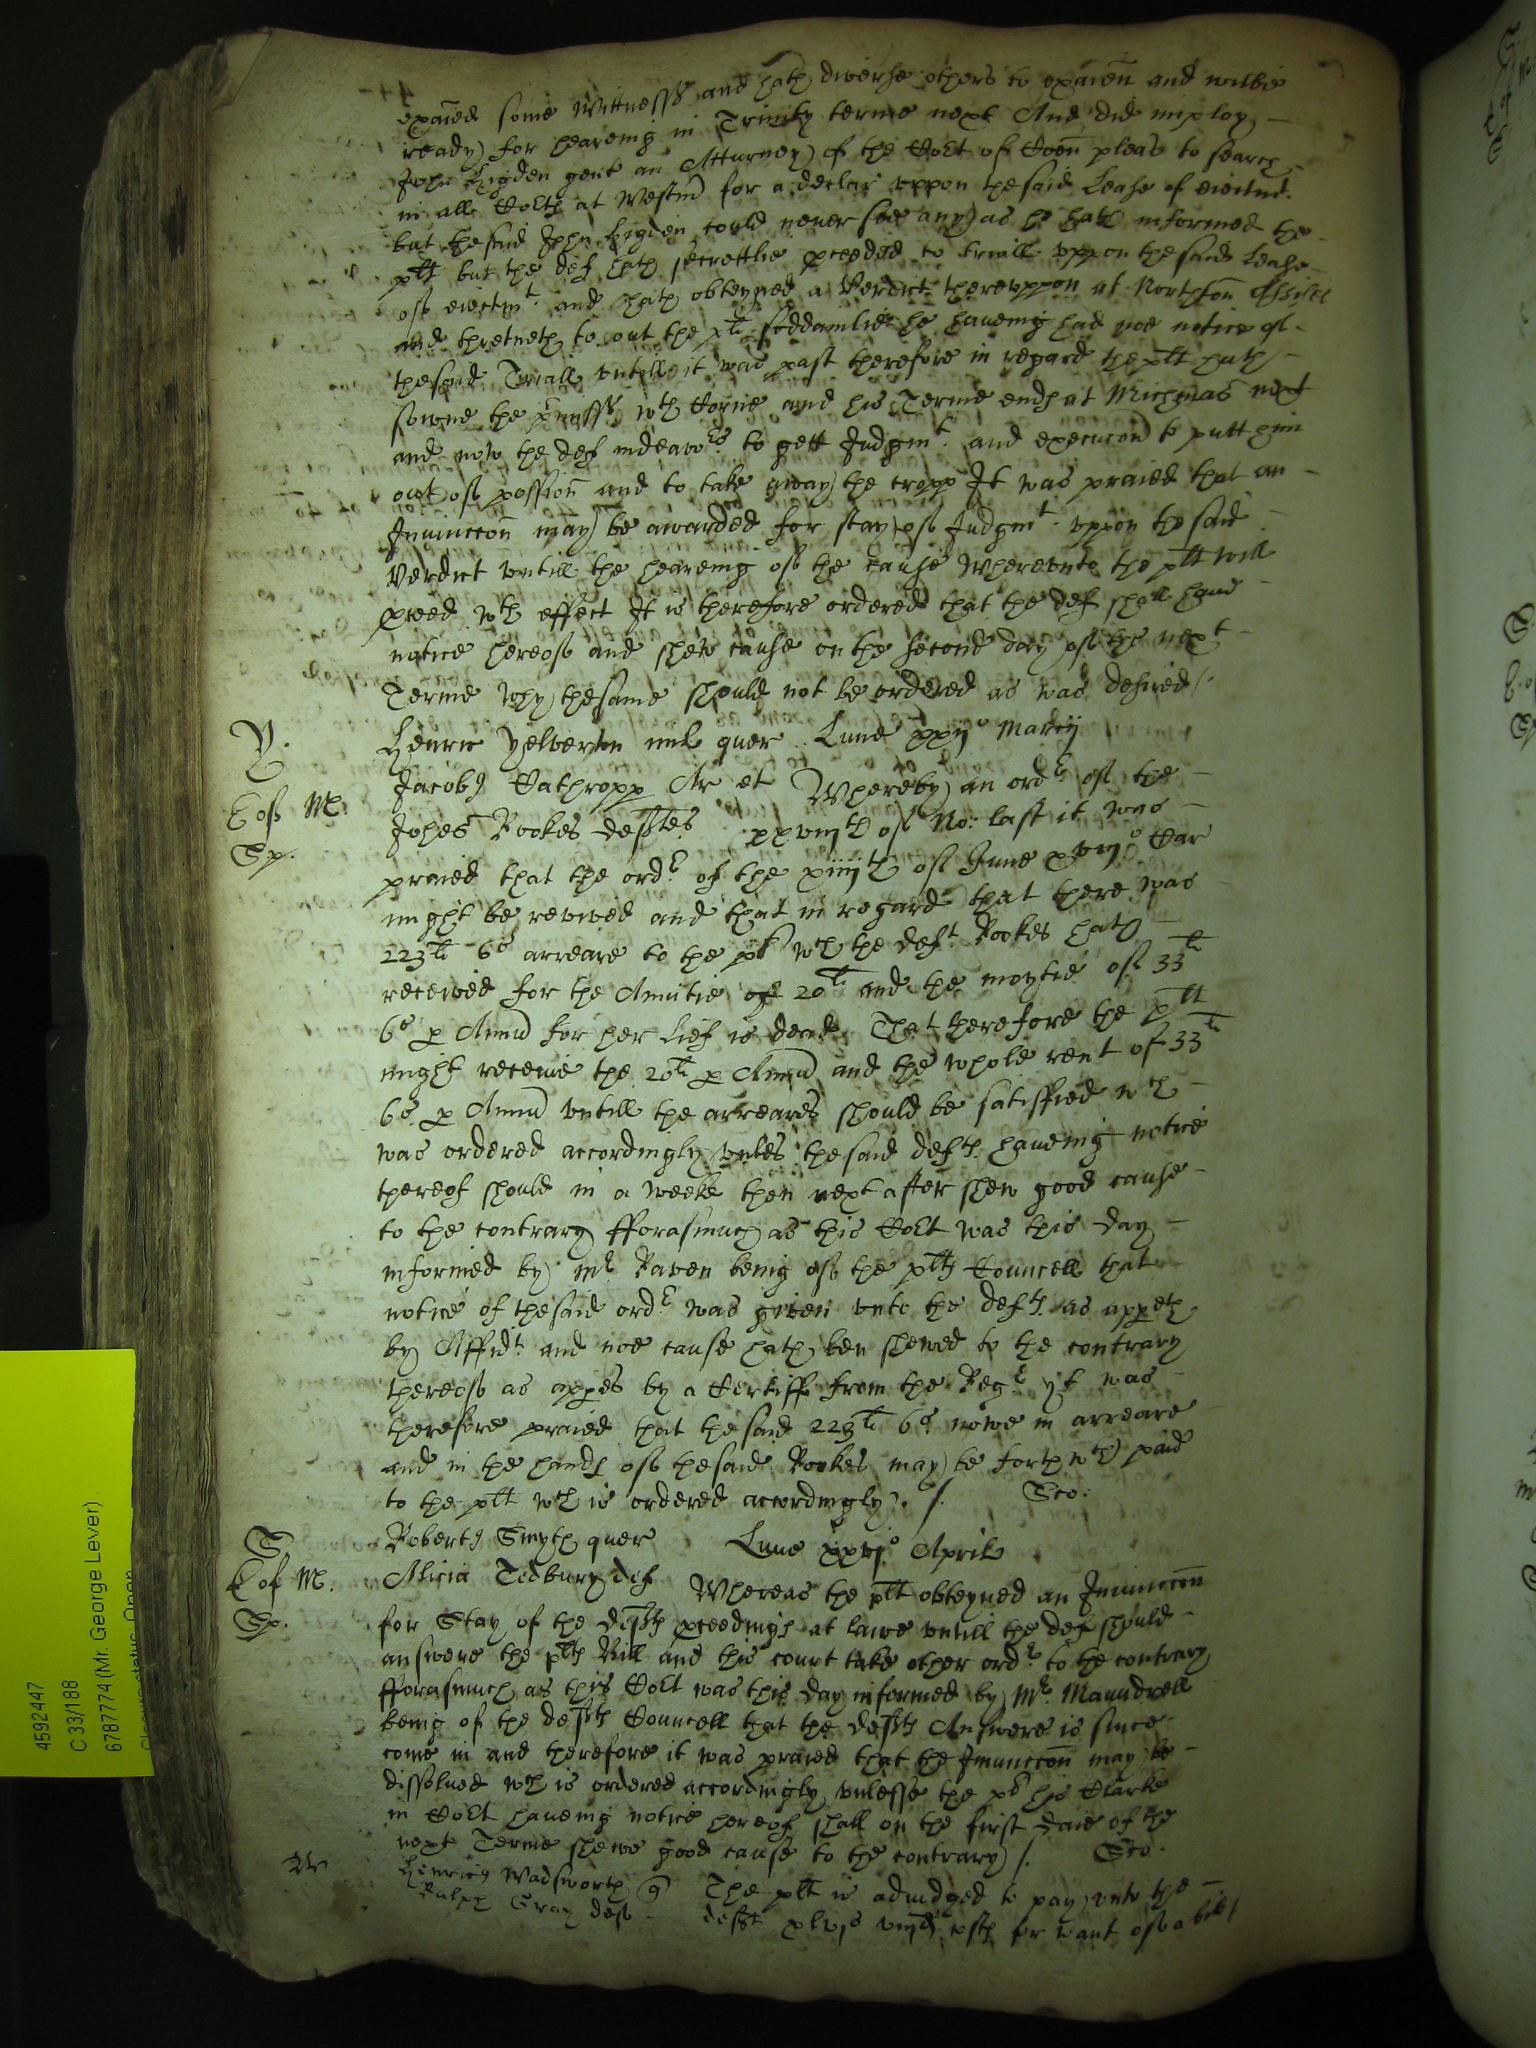 exaied some Wittnesss and hath diverse others to exaien and wilbe
ready for heareing in Trinity terme next And did imploy
John Higden gent an Atturney of the Co^rt of Coen pleas to search
in all Co^rts at Westm for a declar vppon thesaid Lease of eiectmt.
but thesaid John Higden could never see any as he hath informed the
plt but the def hath secrettlie pceeded to triall vppon thesaid Lease
of eiectm^t and hath obteyned a Verdict therevppon at Northton Assises
and thretneth to out the plt soddainlie he haueing had noe notice of
thesaid Triall vntill it was past therefore in regard the plt hath
sowne the pmisss w^th Corne and his Terme ends at Michmas next
and now the def indeavo^rs to gett Judgm^t. and execucon to putt him
out of possion and to take away the cropp It was praied that an
Jniunccon may be awarded for stay of Judgm^t. vppon the said
Verdict vntill the heareing of the cause Wherevnto the plt will
pceed w^th effect It is therefore ordered that the def shall haue
notice hereof and shew cause on the second day of the next
Terme why thesame should not be ordered as was desired /.
Y.
Henric Yelverton mil quer . Lune xxij^o Marcij
E of M.
Jacob9 Cathropp Ar et Whereby an ord^r of the
Sp.
Johes Rookes deftes xxviij^th of No: last it was
praied that the ord^r of the xiiij^th of June xviij^o Car
might be revived and that in regard that there was
223^li 6^s arreare to the plt w^ch the def^t Rookes hath
received for the Anuitie of 20^li and the moytie of 33^li
6^s p Annu for her lief is dead That therefore the plt
might receive the 20^li p Annu and the whole rent of 33^li
6^s p Annu vntill the arreares should be satisfied w^ch
was ordered accordingly vnles the said defts haueing notice
thereof should in a weeke then next after shew good cause
to the contrary fforasmuch as this Co^rt was this day
informed by m^r Raven being of the plts Councell that
notice of thesaid ord^r was given vnto the defts as appeth
by Affid^t and noe cause hath ben shewed to the contrary
thereof as appes by a Certiff from the Reg^r yt was
therefore praied that the said 223^li 6^s nowe in arreare
and in the hands of thesaid Rookes may be forthw^th paid
to the plt w^ch is ordered accordingly. /. Sco:
S
Robert9 Smyth quer Lune xxvj^o Aprilis
E of M.
Alicia Tedbury def Whereas the plt obteyned an Jniunccon
Sp.
for Stay of the defts pceedings at lawe vntill the def should
answere the plts Bill and this court take other ord^r to the contrary
fforasmuch as this Co^rt was this day informed by M^r Maundrell
being of the defts Councell that the defts Answere is since
come in and therefore it was praied that the Jniunccon may be
dissolued w^ch is ordered accordingly vnlesse the plt his Clarke
in Co^rt haueing notice hereof shall on the first daie of the
next Terme shewe good cause to the contrary /. Sco.
W
Henric9 Wadsworth q The plt is adiudged to pay vnto the
Ralph Gray def deft xlvjs viijd costs for want of a bill /
4592447
C 33/188
6787774 (Mr. George Lever)
Closure status: Open